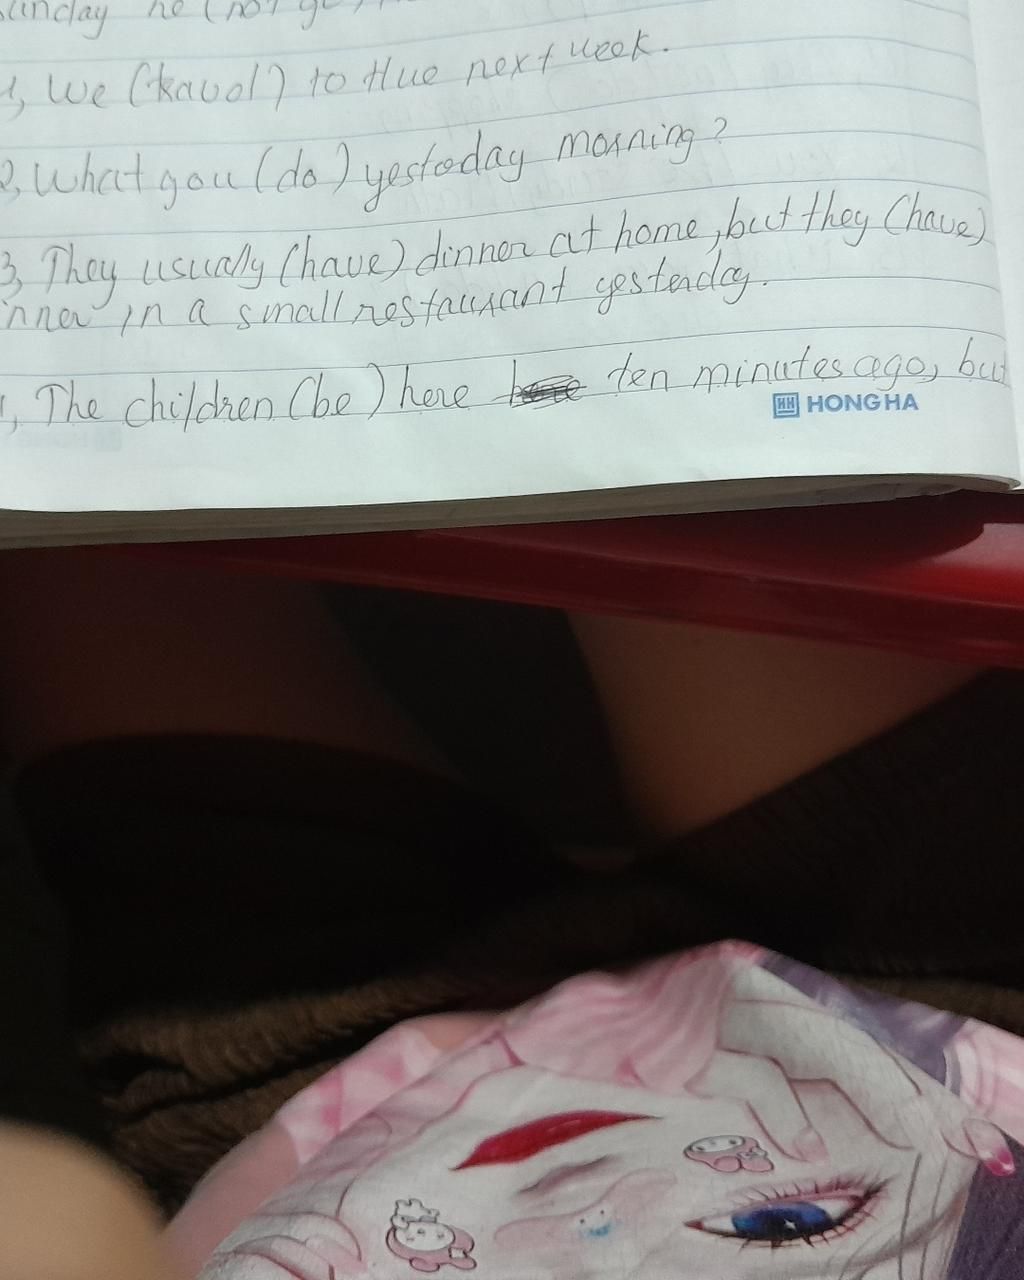 Sunday he (not go
1, We (travel) to Hue next week.
2, What you (do) yesteday morning?
3, They usually (have) dinner at home, but they (have)
nner in a small restaurant yesterday.
, The children (be) here ten minutes ago, but
HH HONG HA